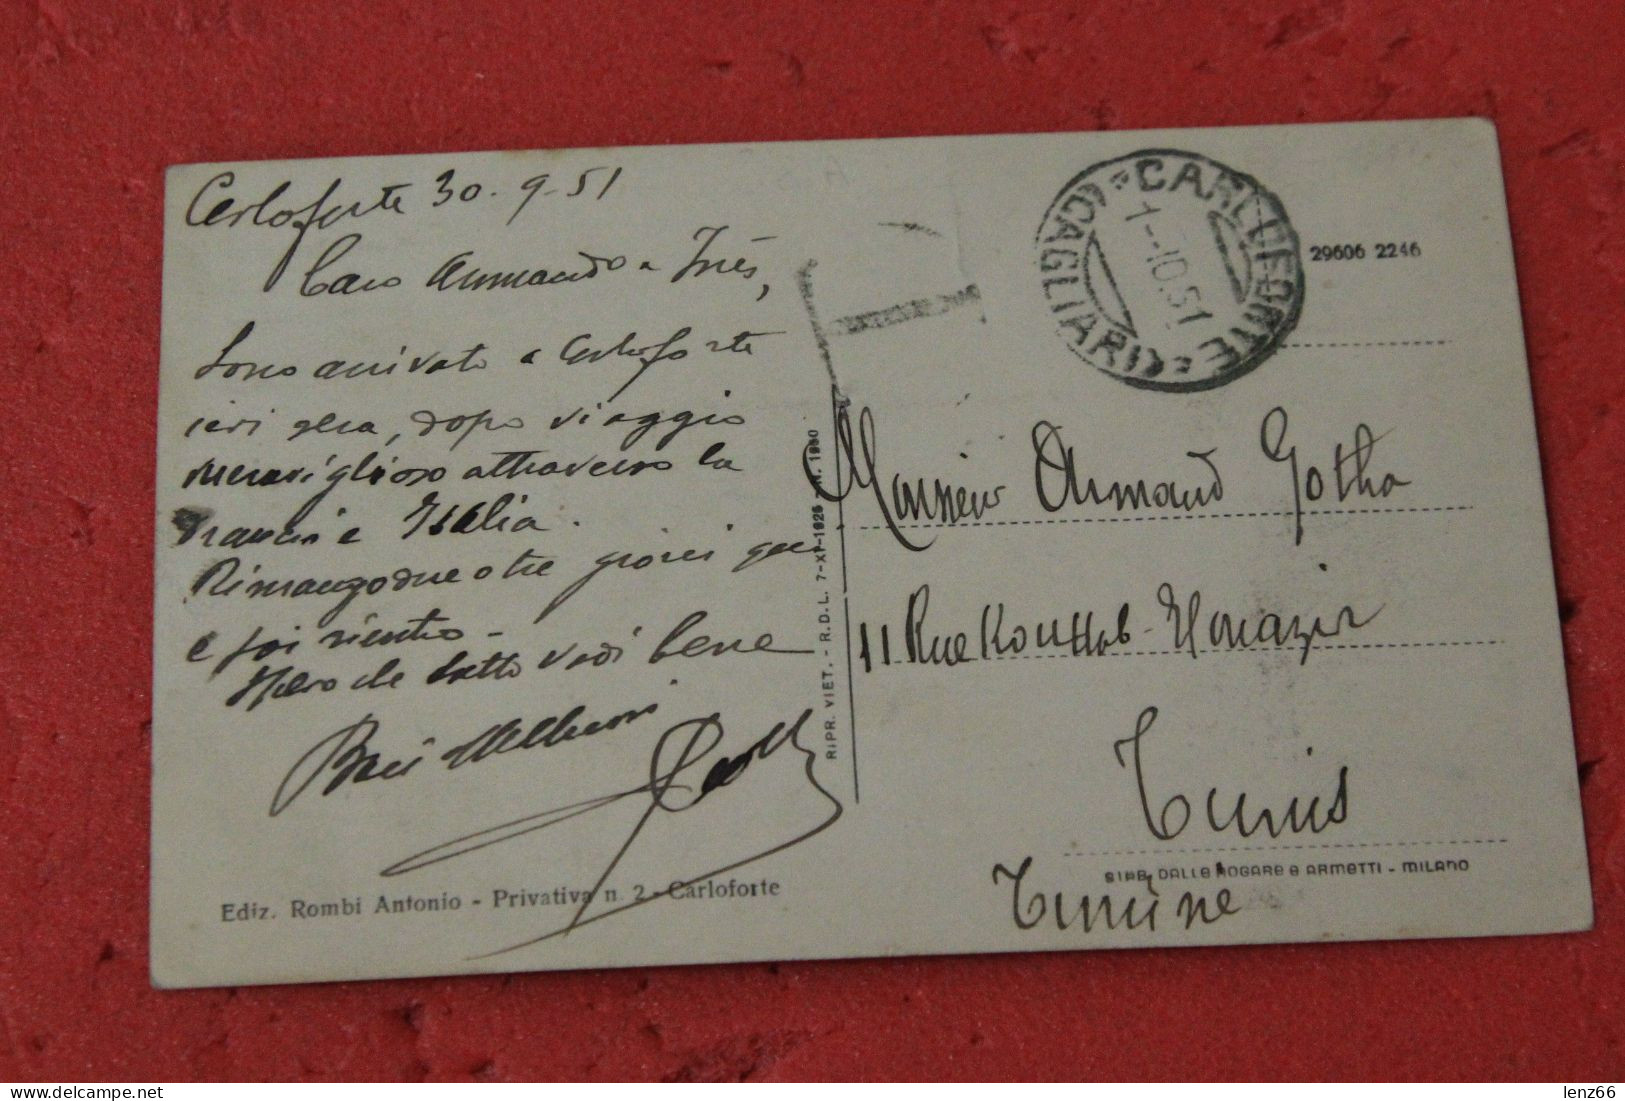 Carloforte 30-9-51
Caro Armando e Inés,
Sono arrivato a Carloforte
ieri sera, dopo viaggio
meraviglioso attraverso la
Francia e Italia.
Rimango due o tre giorni qui
e poi rientro -
Spero che tutto vadi bene
Baci
Ediz. Rombi Antonio - Privativa n. 2 - Carloforte
RIPR. VIET. - R.D.L. 7-XI-1925 - N. 1950
T
CARLOFORTE
(CAGLIARI)
1-10.51
29606 2246
Monsieur Armand Gotha
11 Rue Kouttab
Tunis
Tunisie
DALLE NOGARE e ARMETTI - MILANO
lenz66